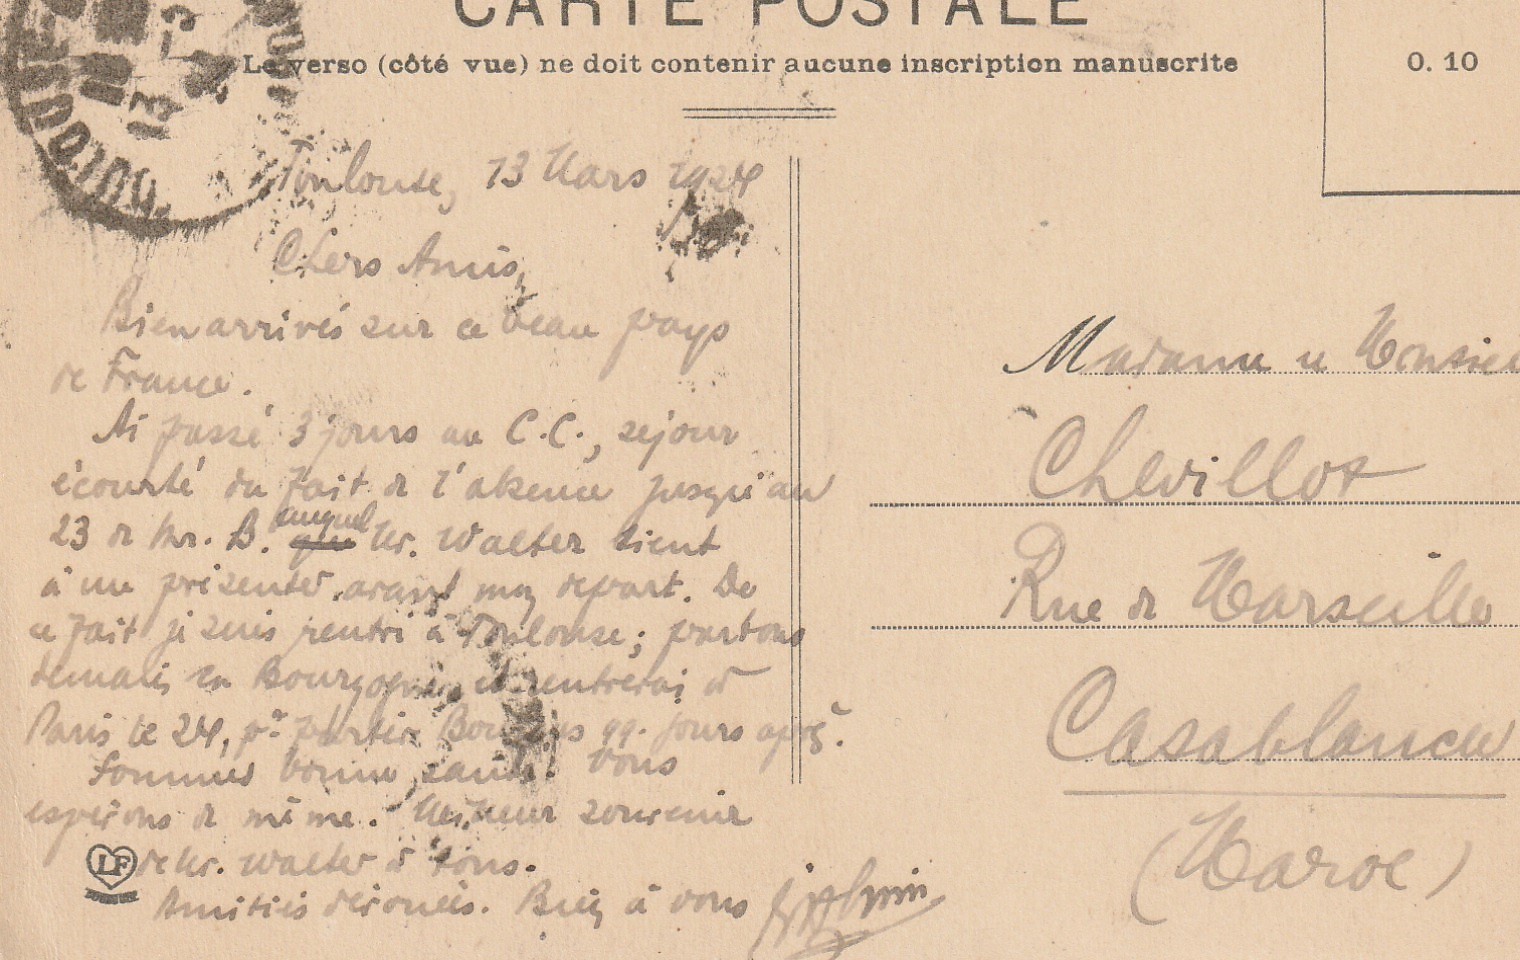 CARTE POSTALE
Le verso (côté vue) ne doit contenir aucune inscription manuscrite
0. 10
Toulouse, 13 Mars 1924
Chers Amis,
Bien arrivés sur ce beau pays
de France.
Ai passé 3 jours au C.C., séjour
écourté du fait de l'absence jusqu'au
23 de Mr. B. auquel Mr. Walter tient
à me présenter avant mon départ. De
ce fait je suis rentré à Toulouse; partons
demain en Bourgogne et rentrerai à
Paris le 24, pr partir qq. jours après.
Sommes bonne santé. Vous
espérons de même. Meilleur souvenir
LF de Mr. Walter à tous.
Amitiés dévouées. Bien à vous
Madame et Monsieu
Chevillot
Rue de Marseille
Casablanca
(Maroc)